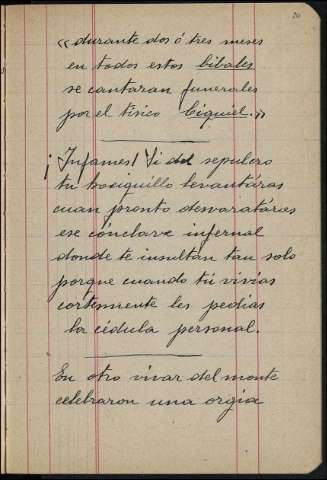 20
«durante dos ó tres meses
en todos estos bibales
se cantaran funerales
por el tísico Ciquiel.»
¡Infames! Si del sepulcro
tu hociquillo levantáras
cuan pronto desvaratáras
ese cónclave infernal
donde te insultán tan solo
porque cuando tú vivías
cortesmente les pedías
la cédula personal.
En otro vivar del monte
celebraron una orgía